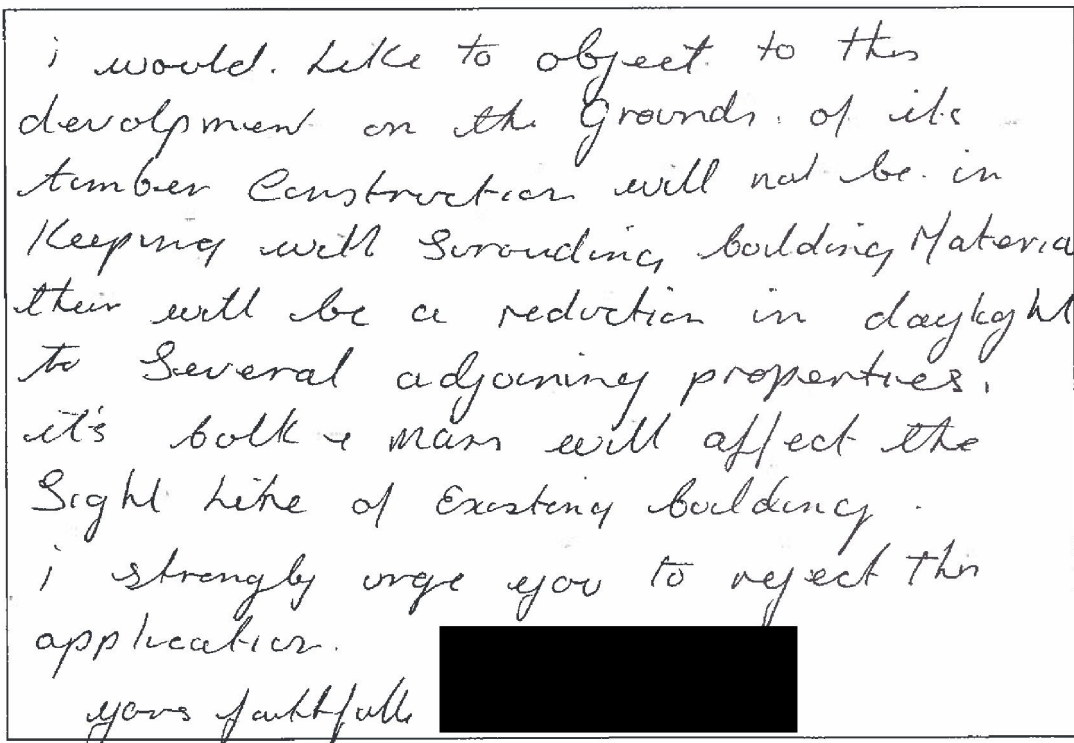 i would. Like to object to this
devolpment on the Grounds. of its
timber Construction will not be in
Keeping will Surouding building Materia
their will be a reduction in daylight
to Several adjoining properties.
it's bulk & mass will affect the
Sight Line of Existing building.
i strongly urge you to reject this
application.
yours faithfull